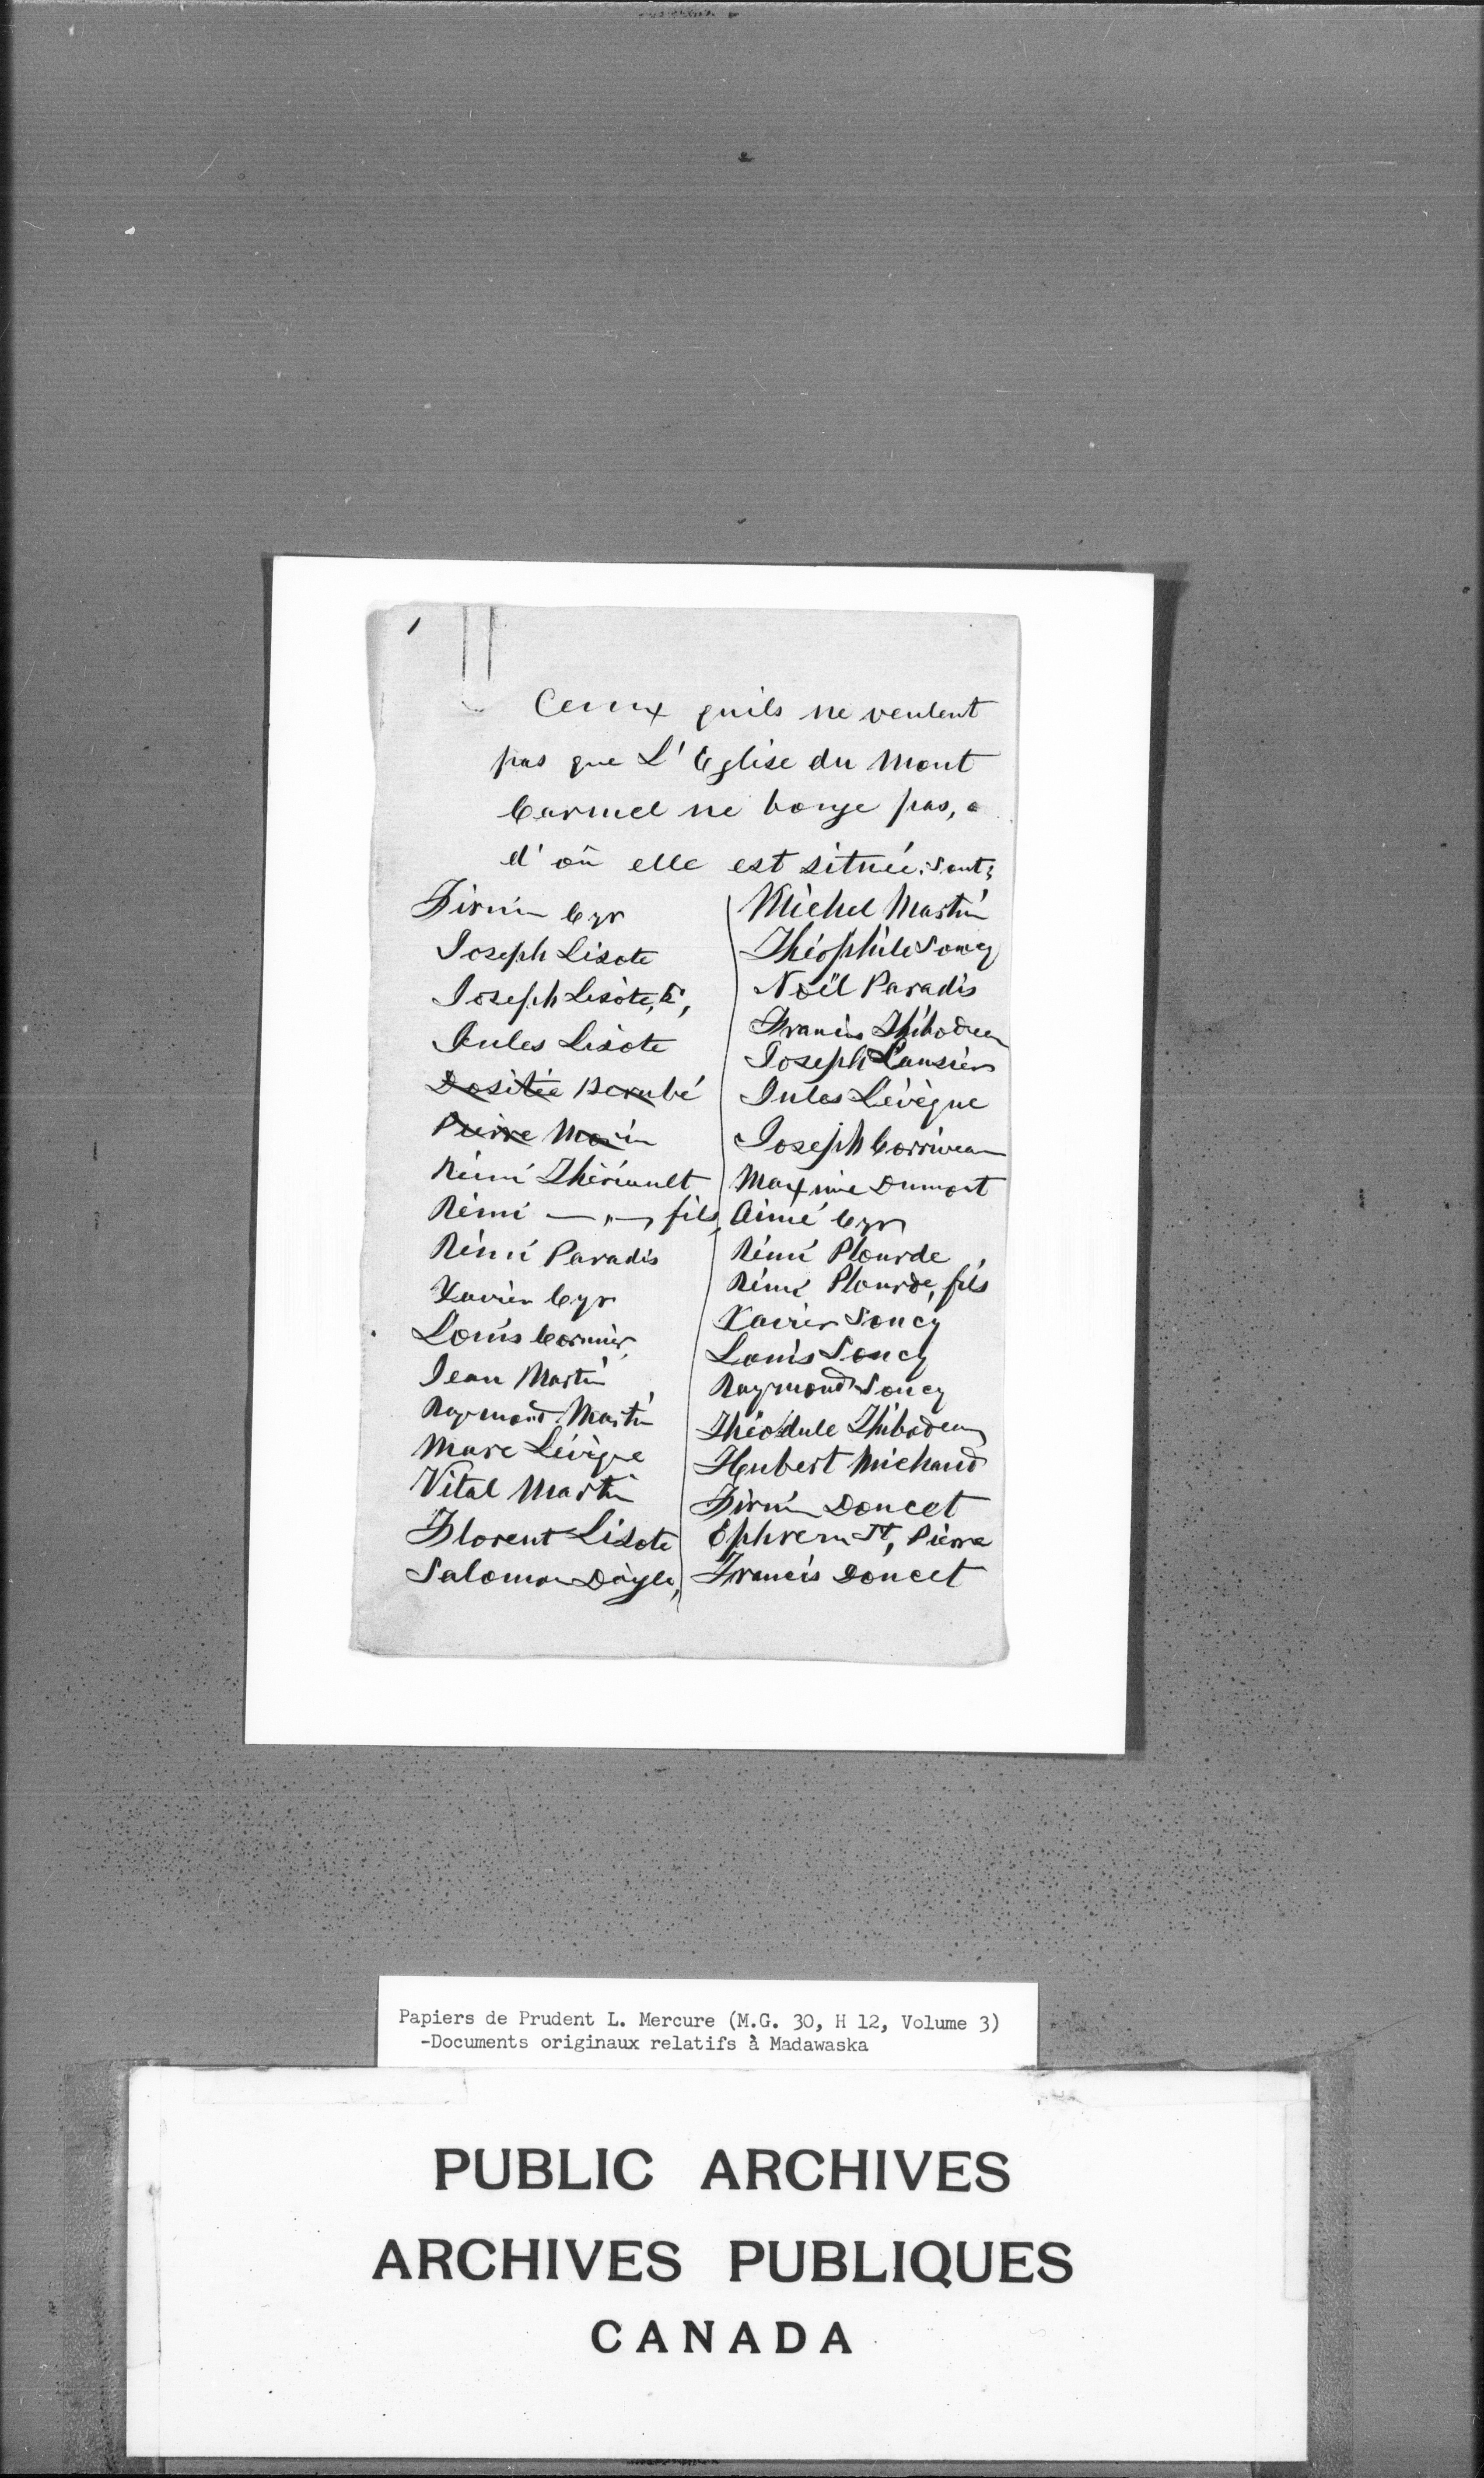 Ceuux quils ne veulent
pas que L'Eglise du Mont
Carmel ne bouge pas,
d'où elle est située. Sont;
Firmin Cyr
Joseph Lisote
Joseph Lisote,
Jules Lisote
Dositée Berubé
Pierre Morin
Rémi Thériault
Rémi — " — fils,
Rémi Paradis
Xavier Cyr
Louis Cormier,
Jean Martin
Raymond Martin
Marc Lévèque
Vital Martin
Florent Lisote
Salomon Doyle,
Michel Martin
Théophile Soucy
Noël Paradis
Francis Thibodeau
Joseph Lausier
Jules Lévèque
Joseph Corriveau
Maxime Dumont
Aimé Cyr
Rémi Plourde
Rémi Plourde, fils
Xavier Soucy
Louis Soucy
Raymond Soucy
Théodule Thibodeau
Hubert Michaud
Firmin Doucet
Ephrem St, Pierre
Francis Doucet
Papiers de Prudent L. Mercure (M.G. 30, H 12, Volume 3)
-Documents originaux relatifs à Madawaska
PUBLIC ARCHIVES
ARCHIVES PUBLIQUES
CANADA